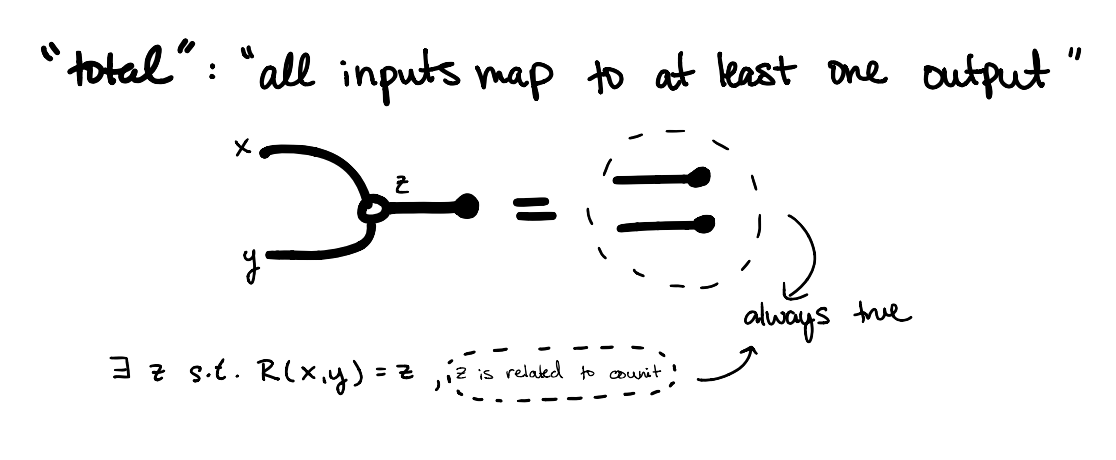 "total": "all inputs map to at least one output"
x
z
y
=
always true
∃ z s.t. R(x,y) = z , z is related to counit